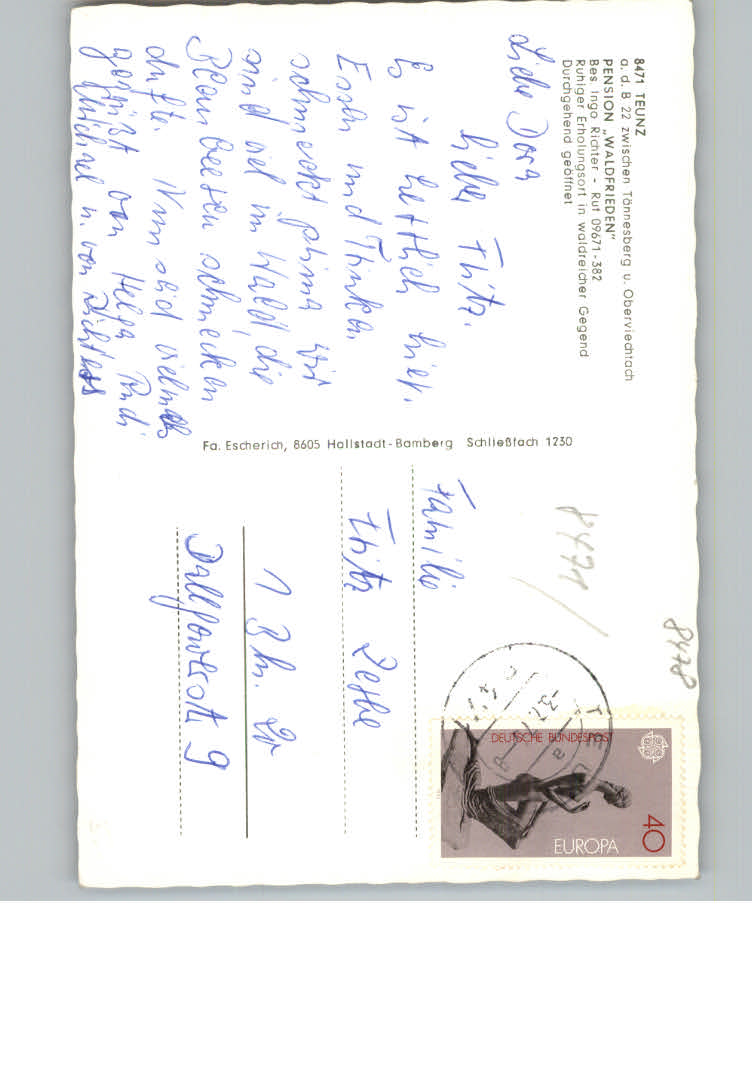 8471 TEUNZ
a. d. B 22 zwischen Tännesberg u. Oberviechtach
PENSION „WALDFRIEDEN"
Bes. Ingo Richter - Ruf 09671-382
Ruhiger Erholungsort in waldreicher Gegend
Durchgehend geöffnet
Liebe Dora
lieber Fritz.
Es ist herrlich hier.
Essen und Trinken
schmeckt prima wir
sind viel im Wald, die
Blaubeeren schmecken
dufte. Nun seid vielmals
gegrüßt von Helga Rudi
Michael u. von Richters
Fa. Escherich, 8605 Hallstadt-Bamberg Schließfach 1230
Familie
Fritz
1 Bln. 20
9
8471
8478
DEUTSCHE BUNDESPOST
EUROPA
40